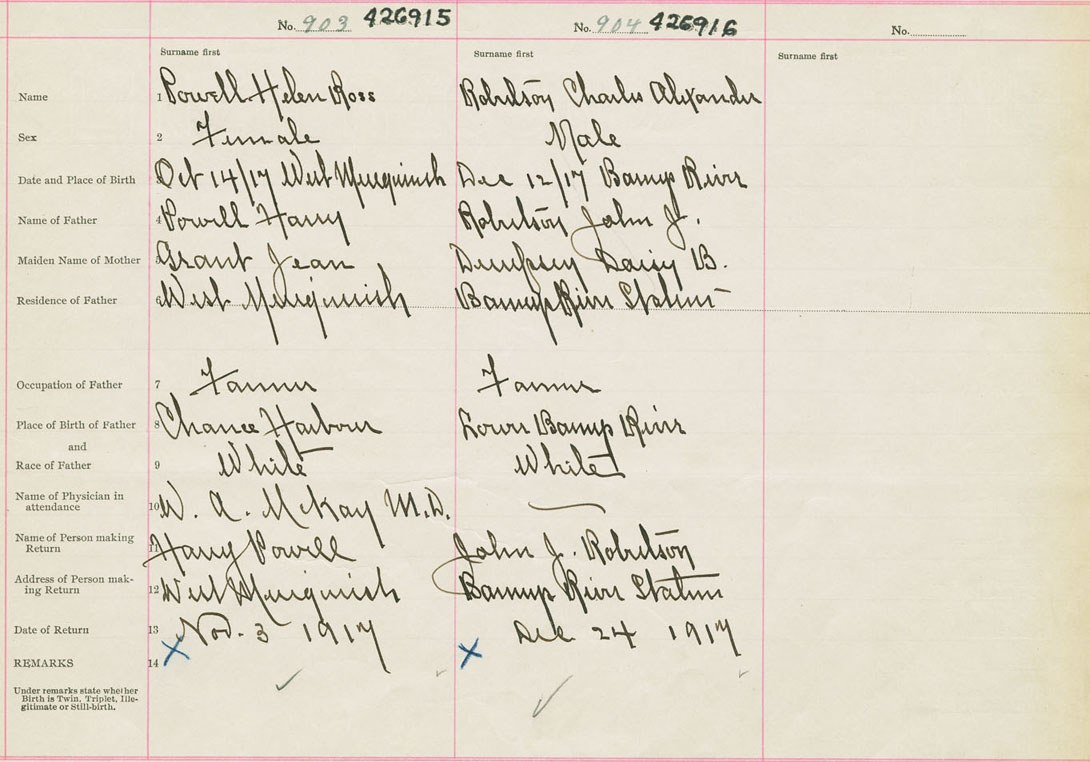 No. 903 426915 No. 904 426916 No.
Surname first Surname first Surname first
Name 1 Powell Helen Ross Robertson Charles Alexander
Sex 2 Female Male
Date and Place of Birth 3 Oct 14/17 West Merigomish Dec 12/17 Barneys River
Name of Father 4 Powell Harry Robertson John J.
Maiden Name of Mother 5 Grant Jean Dempsey Daisy B.
Residence of Father 6 West Merigomish Barneys River Station
Occupation of Father 7 Farmer Farmer
Place of Birth of Father 8 Chance Harbour Lower Barneys River
and
Race of Father 9 White White
Name of Physician in
attendance 10 W. A. McKay M.D.
Name of Person making
Return 11 Harry Powell John J. Robertson
Address of Person mak-
ing Return 12 West Merigomish Barneys River Station
Date of Return 13 Nov. 3 1917 Dec 24 1917
REMARKS 14 X X
Under remarks state whether
Birth is Twin, Triplet, Ille-
gitimate or Still-birth.